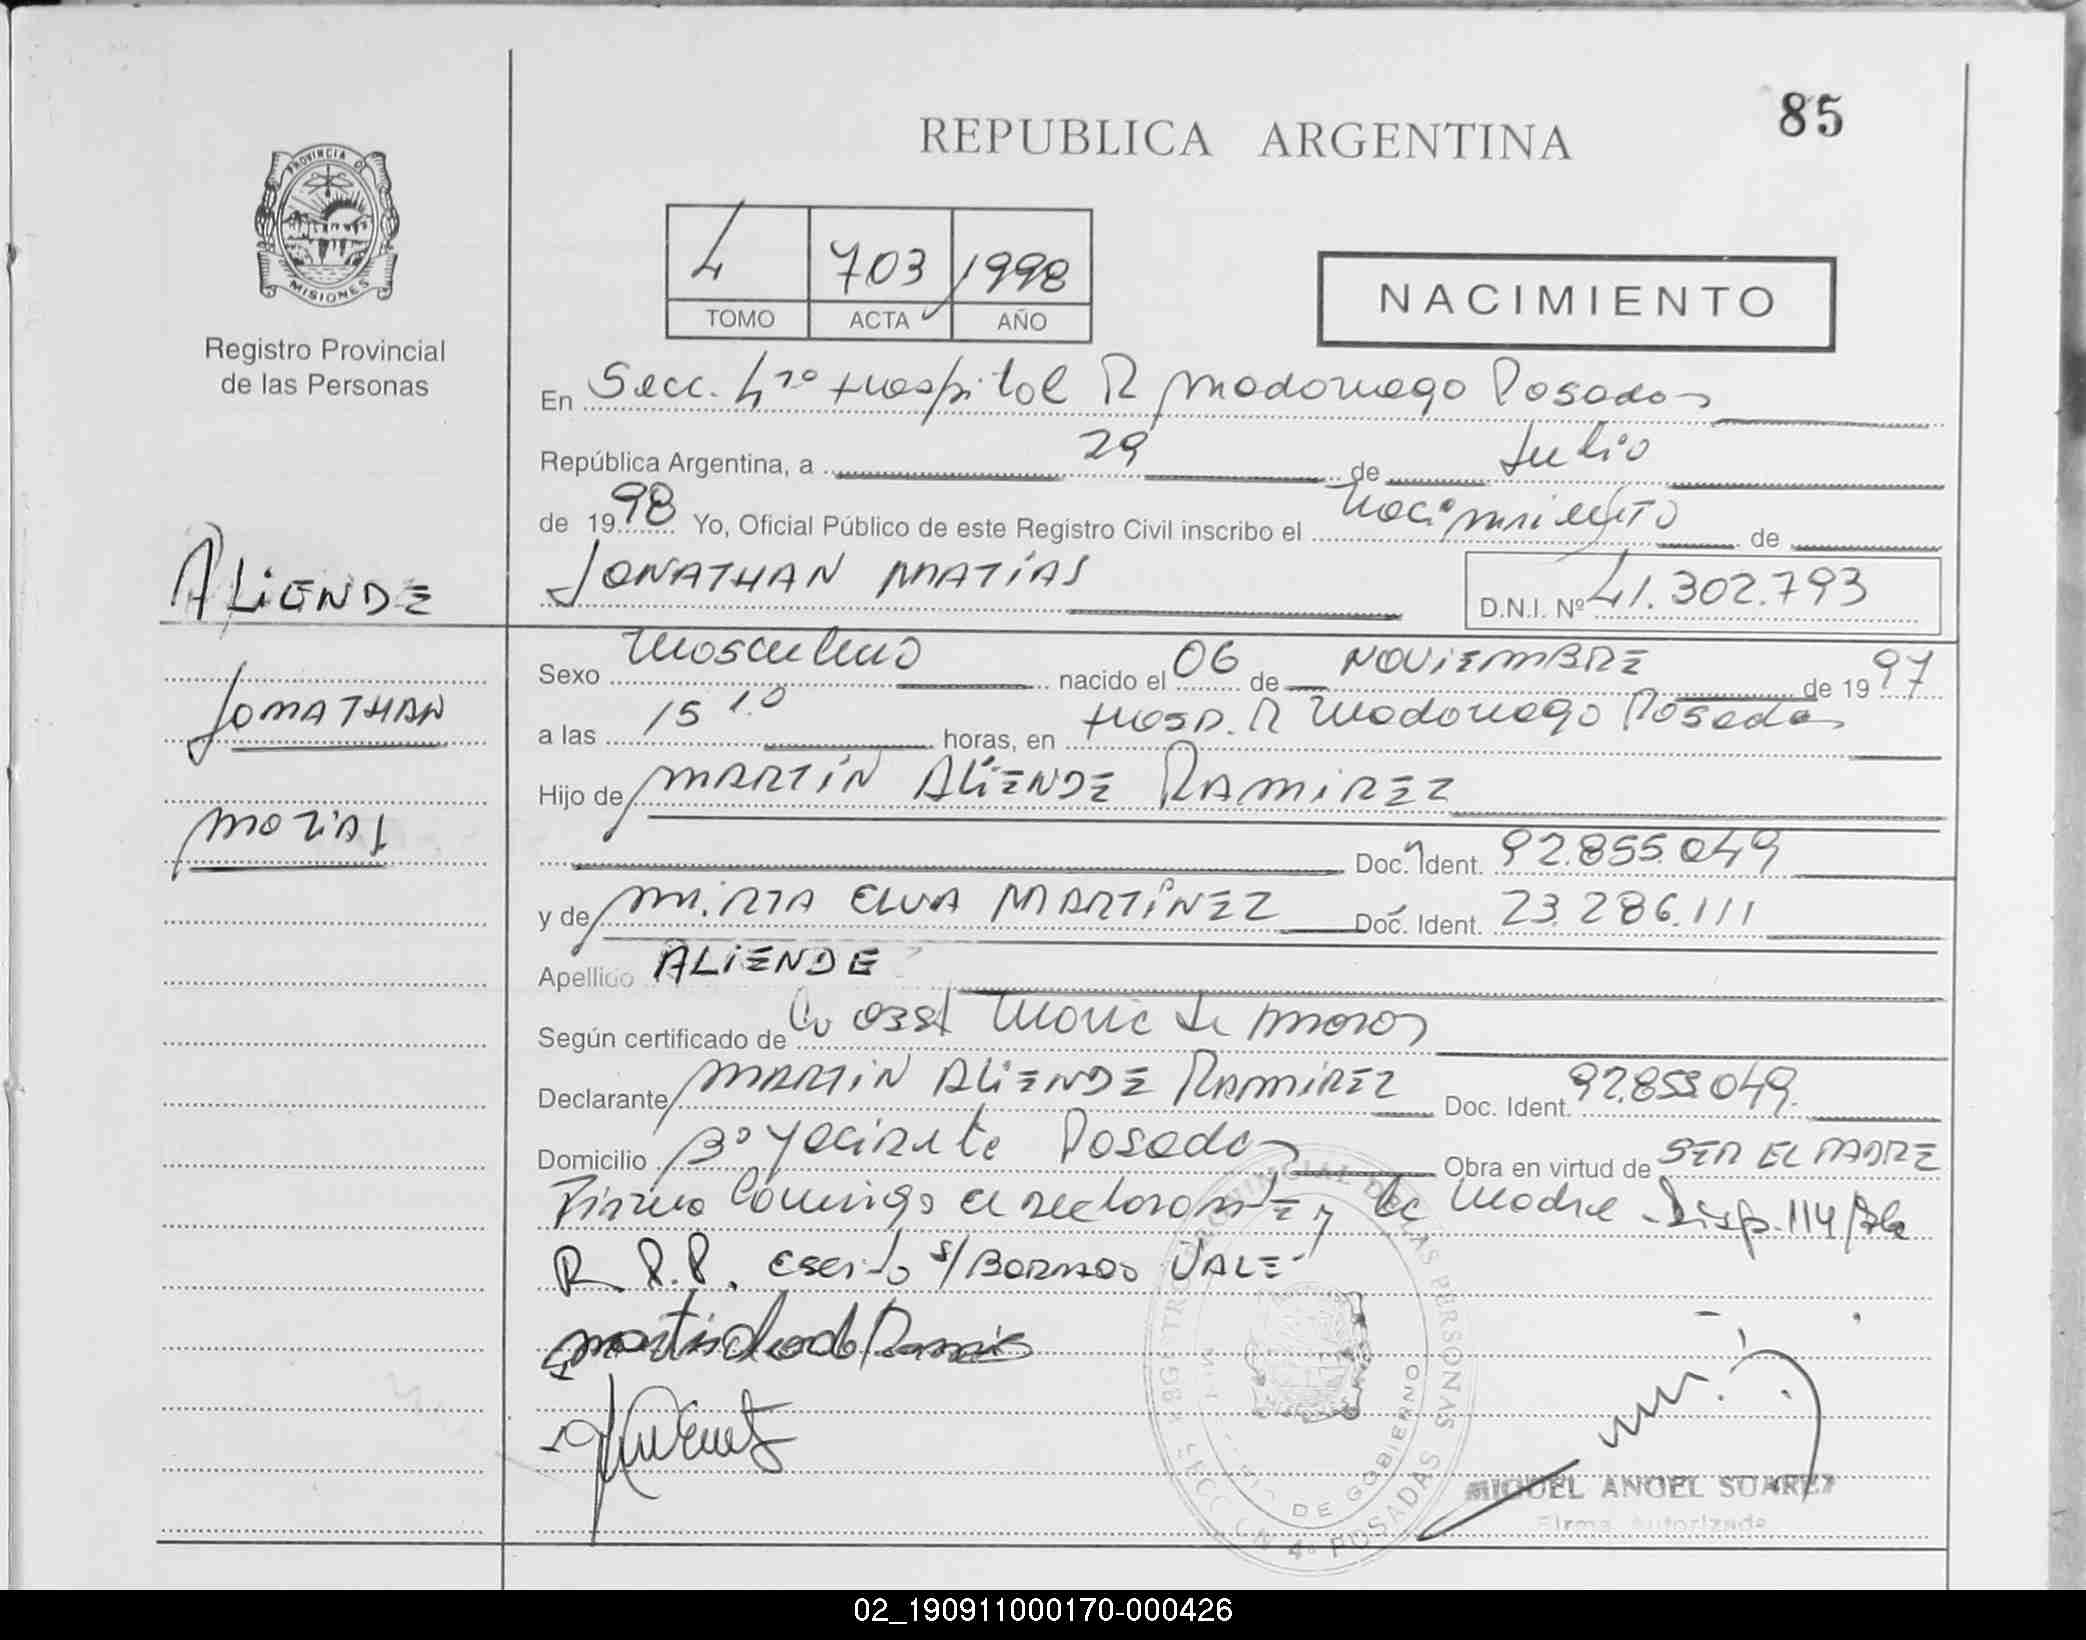 85
REPUBLICA ARGENTINA
PROVINCIA DE
MISIONES
Registro Provincial
de las Personas
4 703 1998
TOMO ACTA AÑO
NACIMIENTO
En Secc. 4ta Hospital R Madariaga Posadas
República Argentina, a 29 de Julio
de 1998 Yo, Oficial Público de este Registro Civil inscribo el Nacimiento de
ALiENDE
JONATHAN MATÍAS
D.N.I. Nº 41.302.793
Sexo Masculino nacido el 06 de NOViEMBRE de 1997
JONATHAN
a las 15 10 horas, en Hosp. R Madariaga Posadas
Hijo de MARTÍN ALiENDE RAMiREZ
MATÍAS
Doc. Ident. 92.855.049
y de MiRTA ELVA MARTÍNEZ Doc. Ident. 23.286.111
Apellido ALiENDE
Según certificado de
Declarante MARTiN ALiENDE RAMiREZ Doc. Ident. 92.855.049
Domicilio Bº Yacireta Posadas Obra en virtud de SER EL PADRE
Firma Conmigo el declarante y la Madre Disp. 114/
R.P.P. Escrito s/ BORRADO VALE
MIGUEL ANGEL SUAREZ
Firma Autorizada
REGISTRO PROVINCIAL DE LAS PERSONAS
DE GOBIERNO
4º POSADAS
02_190911000170-000426